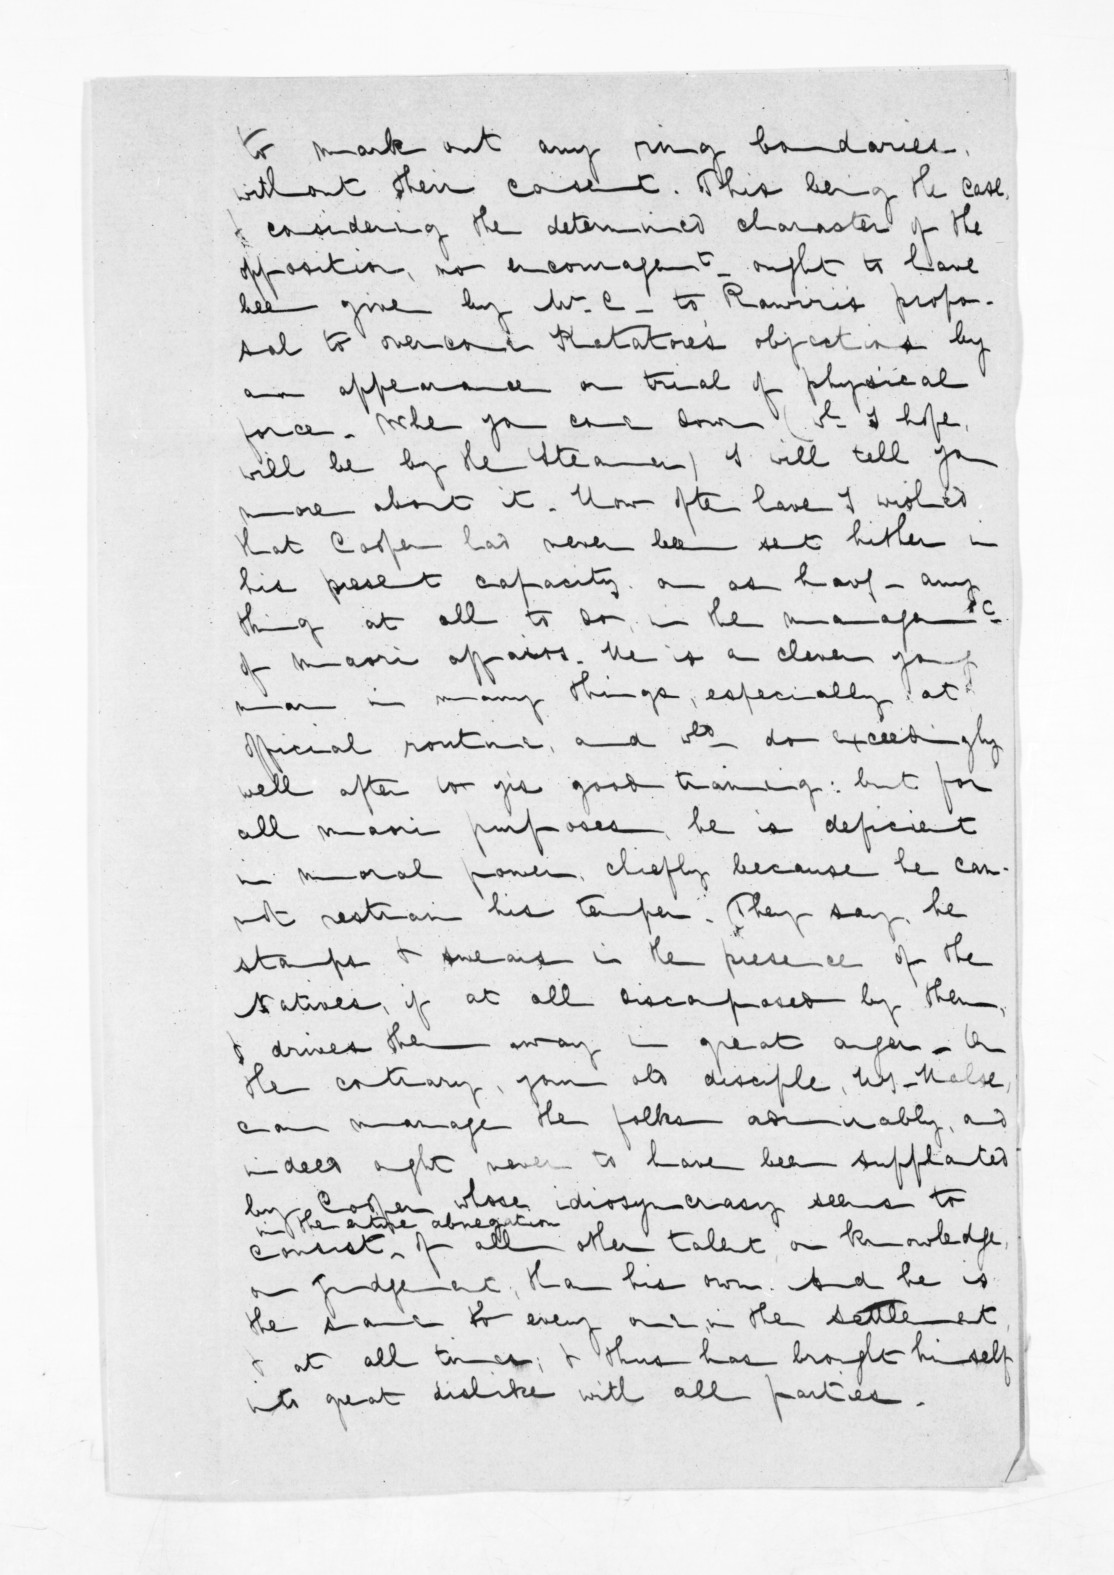 to mark out any ring boundaries,
without their consent. This being the case,
& considering the determined character of the
opposition, no encouragemt ought to have
been given by Mr. C - to Rawiri's propo-
sal to overcome Katatore's objections by
an appearance or trial of physical
force. When you come down (wh. I hope,
will be by the Steamer) I will tell you
more about it. How often have I wished
that Cooper had never been sent hither in
his present capacity, or as havg - any
thing at all to do, in the managemt.
of Maori affairs. He is a clever young
man in many things, especially at
official routine, and wld do exceedingly
well after yr good training: but for
all Maori purposes, he is deficient
in moral power, chiefly because he can-
not restrain his temper. They say, he
stamps & swears in the presence of the
Natives, if at all discomposed by them,
& drives them away in great anger - On
the contrary, your old disciple, Halse,
can manage the folks admirably, and
indeed ought never to have been supplanted
by Cooper whose idiosyncrasy seems to
in the entire abnegation
consist - of all other talent, or knowledge,
or judgement, than his own. And he is
the same to every one, in the settlement,
& at all times; & thus has brought himself
into great dislike with all parties.